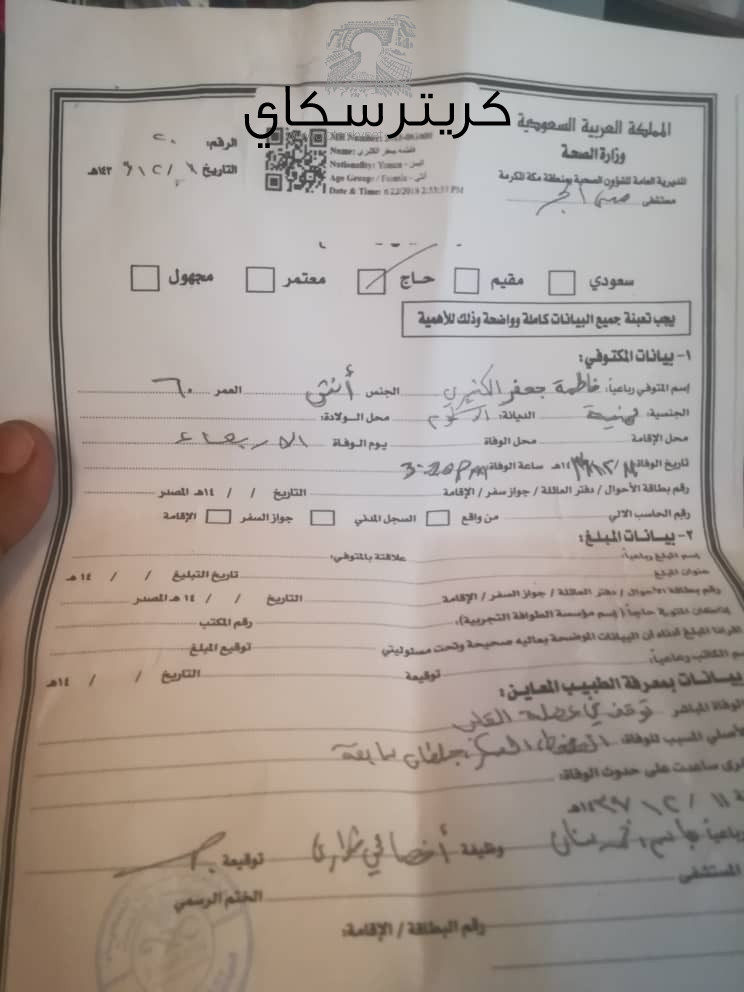 كريتر سكاي
المملكة العربية السعودية
وزارة الصحة
المديرية العامة للشؤون الصحية بمنطقة مكة المكرمة
مستشفى
MR Number:
Name: فاطمه جعفر الكثيري
Nationality: Yemen - اليمن
Age Group: / Female - أنثى
Date & Time: 8/22/2018 2:53:33 PM
الرقم:
التاريخ / / ١٤٣هـ
سعودي
مقيم
حاج
معتمر
مجهول
يجب تعبئة جميع البيانات كاملة وواضحة وذلك للأهمية
١- بيانات المتوفي:
إسم المتوفي رباعياً: فاطمة جعفر الكثيري الجنس أنثى العمر ٦٠
الجنسية: يمنية الديانة: الاسلام محل الولادة:
محل الإقامة محل الوفاة يوم الوفاة الاربعاء
تاريخ الوفاة ١٤هـ ساعة الوفاة 3:20 PM
رقم بطاقة الأحوال / دفتر العائلة / جواز سفر / الإقامة التاريخ / / ١٤هـ المصدر
رقم الحاسب الآلي من واقع السجل المدني جواز السفر الإقامة
٢- بيانات المبلغ:
إسم المبلغ رباعياً: علاقته بالمتوفي:
عنوان المبلغ تاريخ التبليغ / / ١٤هـ
رقم بطاقة الأحوال / دفتر العائلة / جواز سفر / الإقامة التاريخ / / ١٤هـ المصدر
إذا كان المتوفى حاجاً (إسم مؤسسة الطوافة التجريبية): رقم المكتب
أقر أنا المبلغ أدناه أن البيانات الموضحة بعاليه صحيحة وتحت مسئوليتي توقيع المبلغ
سم الكاتب رباعياً: توقيعة التاريخ / / ١٤هـ
بيانات بمعرفة الطبيب المعاين:
الوفاة المباشر توقف في عضلة القلب
لأصلي المسبب للوفاة: الضغط، السكر، جلطات سابقة
خرى ساعدت على حدوث الوفاة:
١١ / ١٢ / ١٤٣٧هـ
رباعياً وظيفة أخصائي طوارئ توقيعة
المستشفى الختم الرسمي
رقم البطاقة / الإقامة: